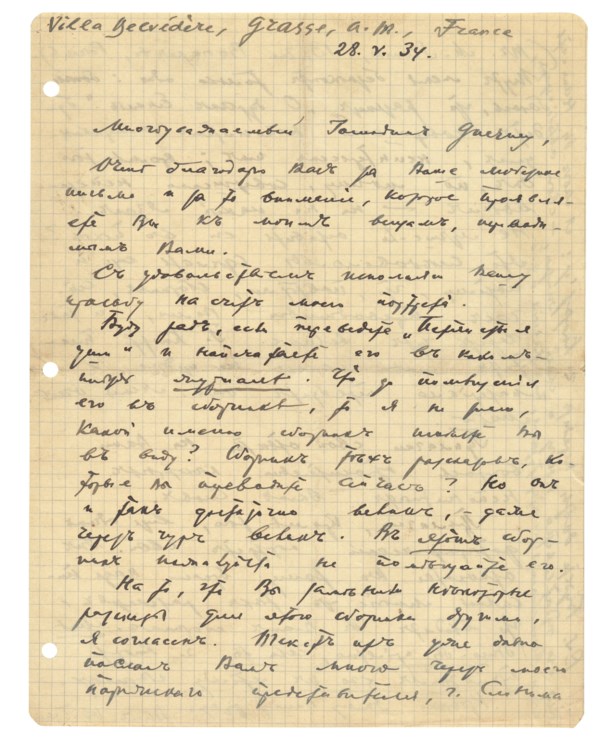 Villa Belvédère, Grasse, A.M., France
28. V. 34.
Многоуважаемый Господинъ Guerney,
Очень благодарю Васъ за Ваше любезное
письмо и за то вниманіе, которое проявля-
ете Вы къ моимъ вещамъ, переводи-
мымъ Вами.
Съ удовольствіемъ исполняю Вашу
просьбу на счетъ моего портрета.
Буду радъ, если переведете „
" и напечатаете его въ какомъ-
нибудь журналѣ. Что до помѣщенія
его въ сборникѣ, то я не знаю,
какой именно сборникъ имѣете Вы
въ виду? Сборникъ тѣхъ разсказовъ, ко-
торые Вы переводите сейчасъ? Но онъ
и такъ достаточно великъ, – даже
черезъ чуръ великъ. Въ этотъ сбор-
никъ пожалуйста не помѣщайте его.
На то, что Вы замѣнили нѣкоторые
разсказы для этого сборника другими,
я согласенъ. Текстъ ихъ уже давно
посланъ Вамъ мною черезъ моего
парижскаго представителя, г. Слонима